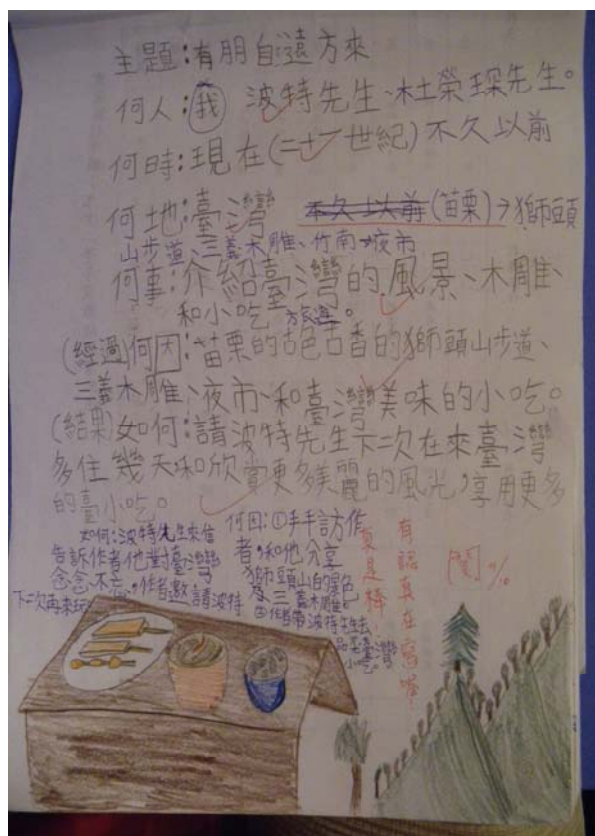 主題:有朋自遠方來
何人:我 波特先生、杜榮琛先生。
何時:現在(二十一世紀)不久以前
何地:臺灣 不久以前(苗栗)→獅頭
山步道、三義木雕、竹南→夜市
何事:介紹臺灣的風景、木雕、
和小吃 。
(經過)何因:苗栗的古色古香的獅頭山步道、
三義木雕、夜市、和臺灣美味的小吃。
(結果)如何:請波特先生下二次在來臺灣
多住幾天和欣賞更多美麗的風光,享用更多
的臺小吃。
如何:波特先生來信
告訴作者他對臺灣
念念不忘,作者邀請波特
下次再來玩
何因:①手手訪作
者,和他分享
獅頭山的景色
及三義木雕。
②作者帶波特先生去
品嘗臺灣
小吃。
有認真在寫喔!
真是棒
閱